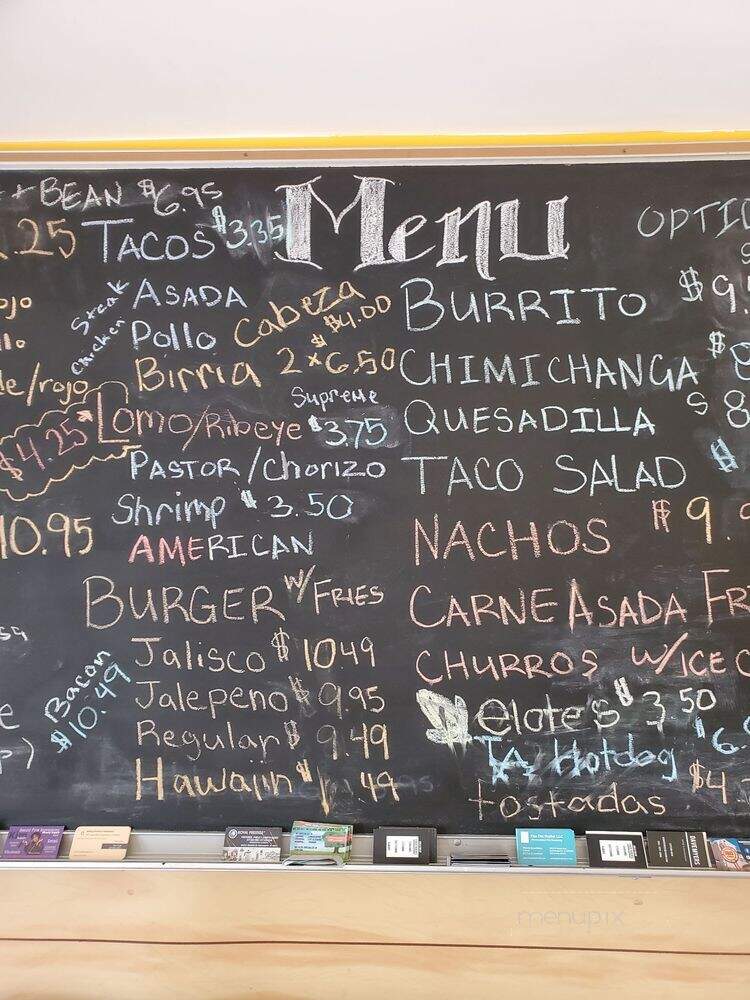 BEAN $6.95
Menu
.25
TACOS $3.35
OPTIO
Steak ASADA
Cabeza $4.00
BURRITO $9.
Chicken Pollo
Birria 2x6.50
CHIMICHANGA $8
de/rojo
Supreme
$4.25 Lomo/Ribeye $3.75
QUESADILLA $8
PASTOR/Chorizo
TACO SALAD $
10.95
Shrimp $3.50
NACHOS $9.9
AMERICAN
BURGER W/FRIES
CARNE ASADA FR
Jalisco $10.49
CHURROS W/ICE C
Bacon $10.49
Jalepeno $9.95
Elote's $3.50
Regular $9.49
Hotdog $6.
Hawaiin
tostadas $4.
menupix